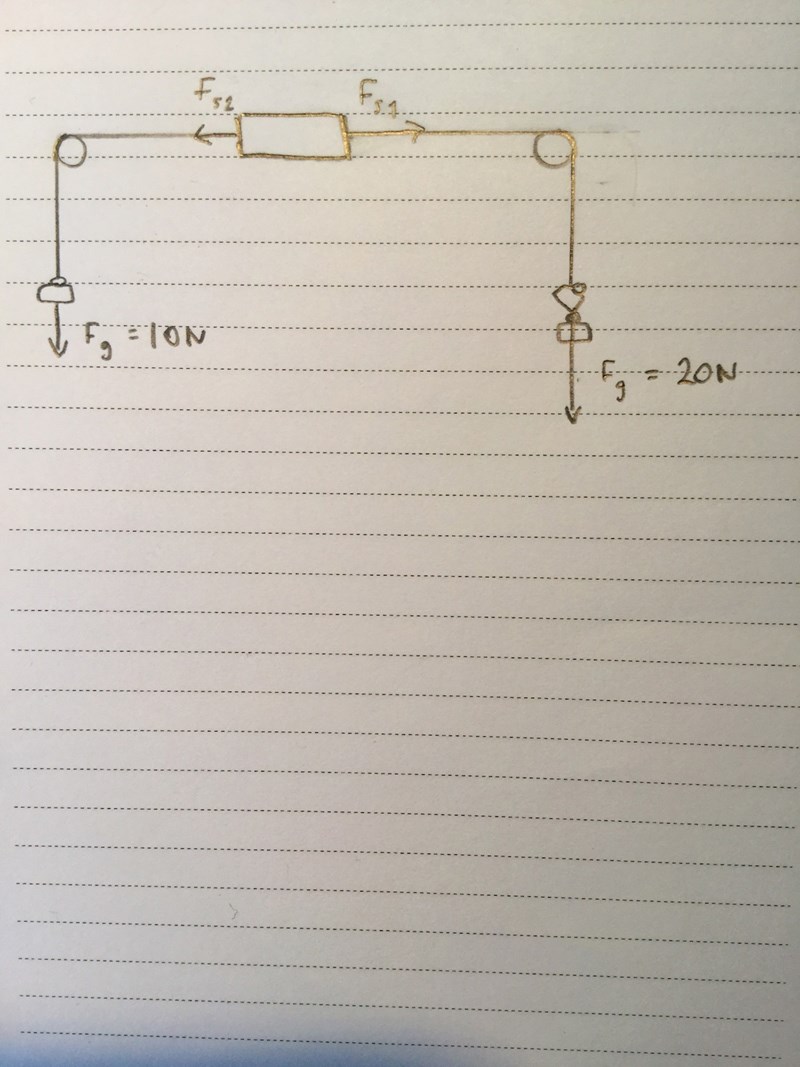 F_s2
F_s1
F_g = 10N
F_g = 20N